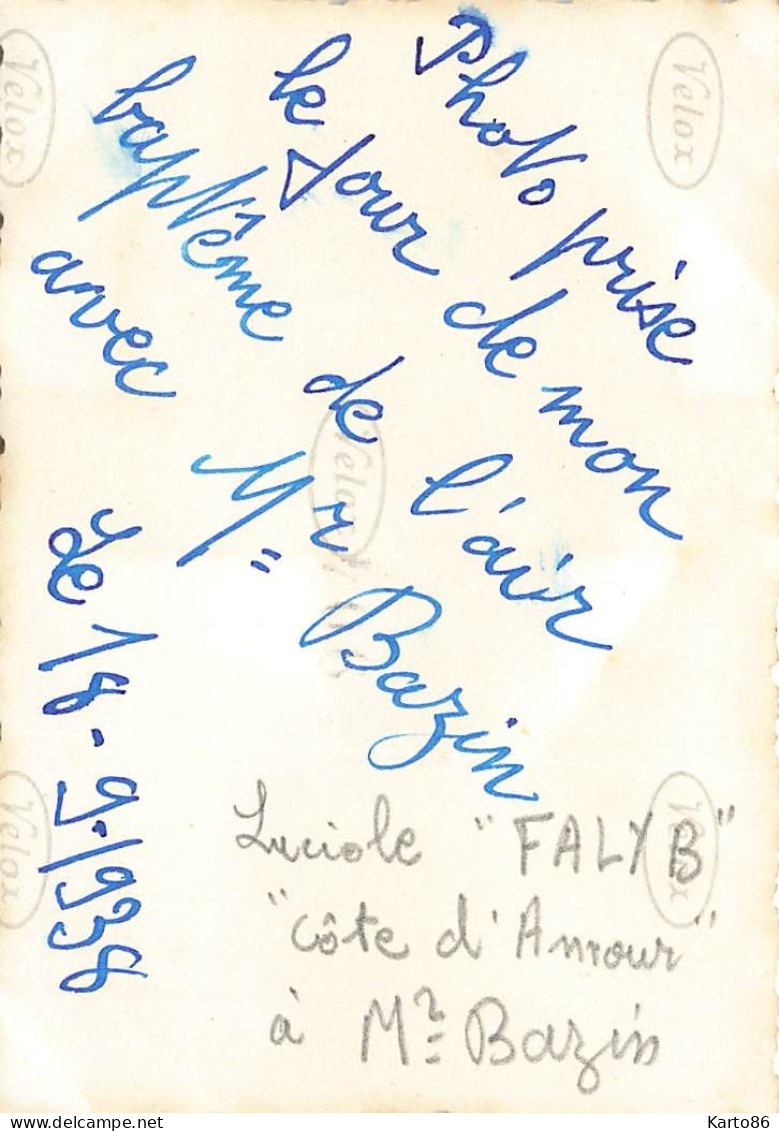 Photo prise
le jour de mon
baptême de l'air
avec Mr Bazin
Le 18-9-1938
Luciole "FALYB"
"Côte d'Amour"
à Mr Bazin
Velox
Velox
Velox
Velox
Velox
Karto86